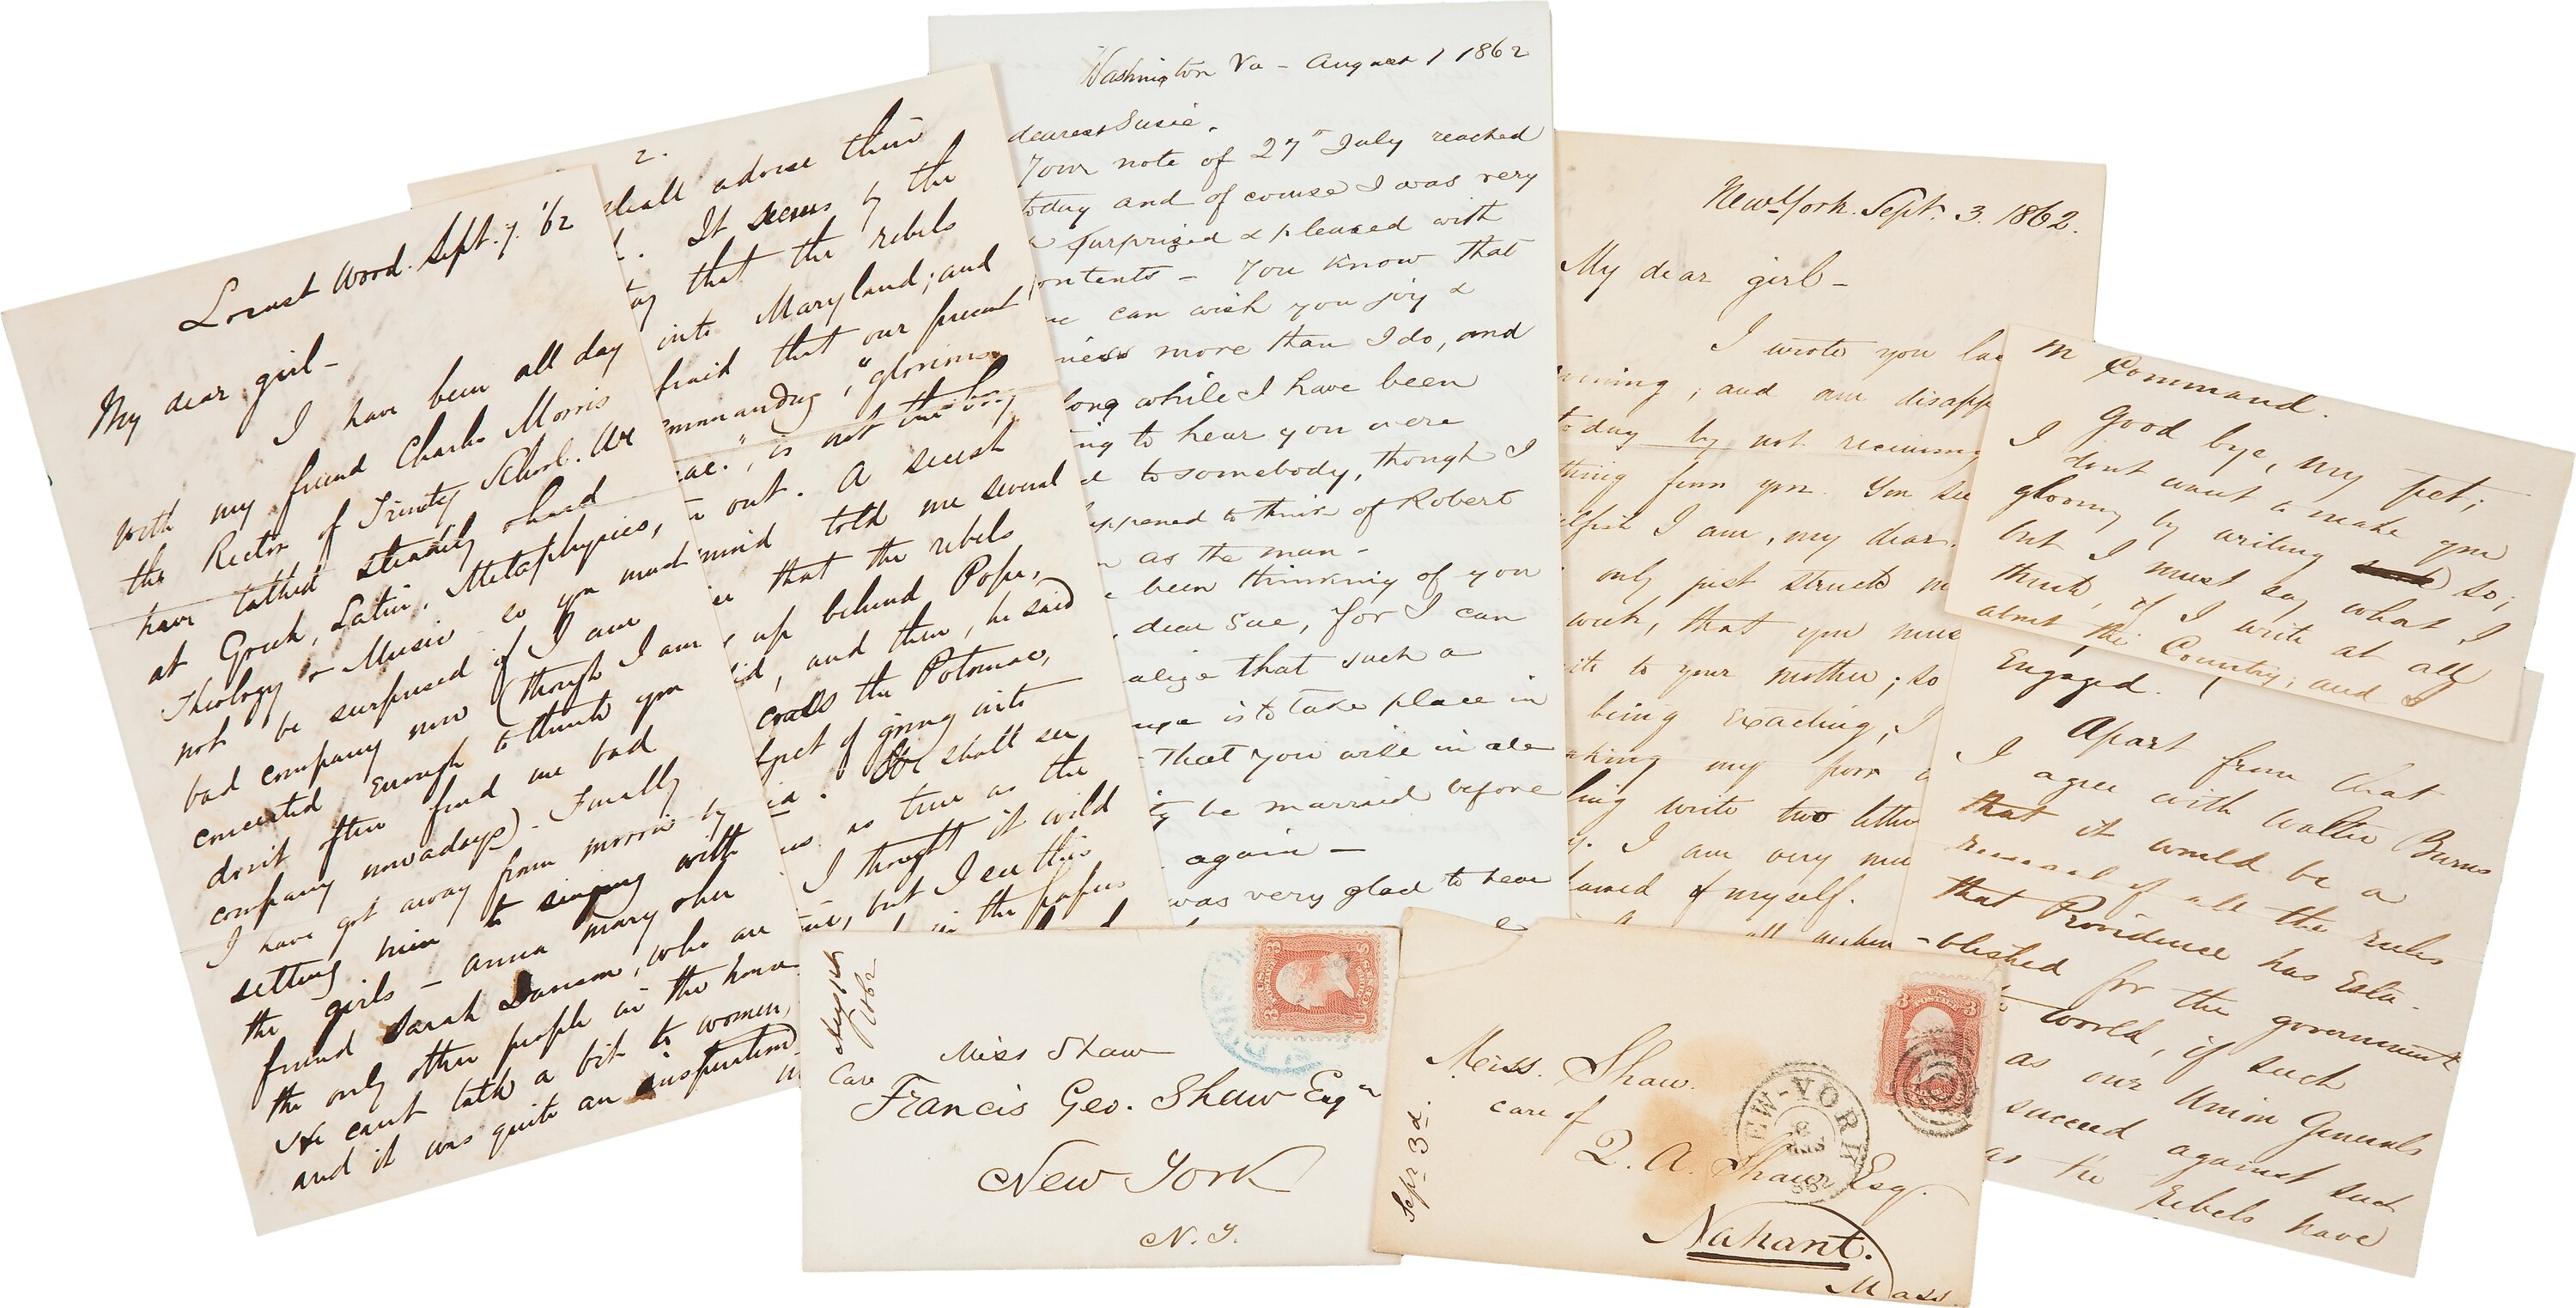 Locust Wood. Sept. 7. '62
My dear girl -
I have been all day
with my friend Charles Morris
the Rector of Trinity School. We
have talked steadily & hard
at Greek, Latin, Metaphysics,
Theology & Music - so you must
not be surprised if I am
bad company now (though I am
conceited enough to think you
don't often find me bad
company nowadays) - Finally
I have got away from Morris by
setting him to singing with
the girls - Anna Mary & her
friend Sarah, who are
the only other people in the house
He can't talk a bit to women,
and it was quite an inspiration
2.
shall advise their
It seems by the
that the rebels
into Maryland; and
afraid that our present
commanding, "glorious
is not the
out. A secesh
told me several
that the rebels
up behind Pope,
and then, he said
cross the Potomac,
of going into
We shall see
as true as the
I thought it wild
but I see this
in the papers
Washington Va - August 1 1862
dearest Susie.
Your note of 27th July reached
today and of course I was very
surprized & pleased with
contents - You know that
can wish you joy &
more than I do, and
long while I have been
to hear you were
to somebody, though I
happened to think of Robert
as the man -
been thinking of you
dear Sue, for I can
realize that such a
is to take place in
That you will in all
be married before
again -
was very glad to hear
New-York. Sept. 3. 1862.
My dear girl -
I wrote you
evening; and am
today by not receiving
thing from you. You see
selfish I am, my dear.
only just struck
week, that you
to your mother; so
being exacting, I
my poor
write two
I am very
ashamed of myself.
all
in Command.
Good bye, my pet;
I dont want to make you
gloomy by writing so;
but I must say what I
think, if I write at all
about the Country; and I
Engaged.
Apart from that
I agree with Walter Burns
that it would be a
reversal of all the rules
that Providence has Esta-
-blished for the government
world, if such
as our Union Generals
succeed against such
as the Rebels have
Aug 1st
1862
Miss Shaw
Care
Francis Geo. Shaw Esqr
New York
N. Y.
Sept 3d.
Miss. Shaw.
care of
Q. A. Shaw Esq.
Nahant.
Mass.
NEW-YORK
U.S.
POSTAGE
3 3